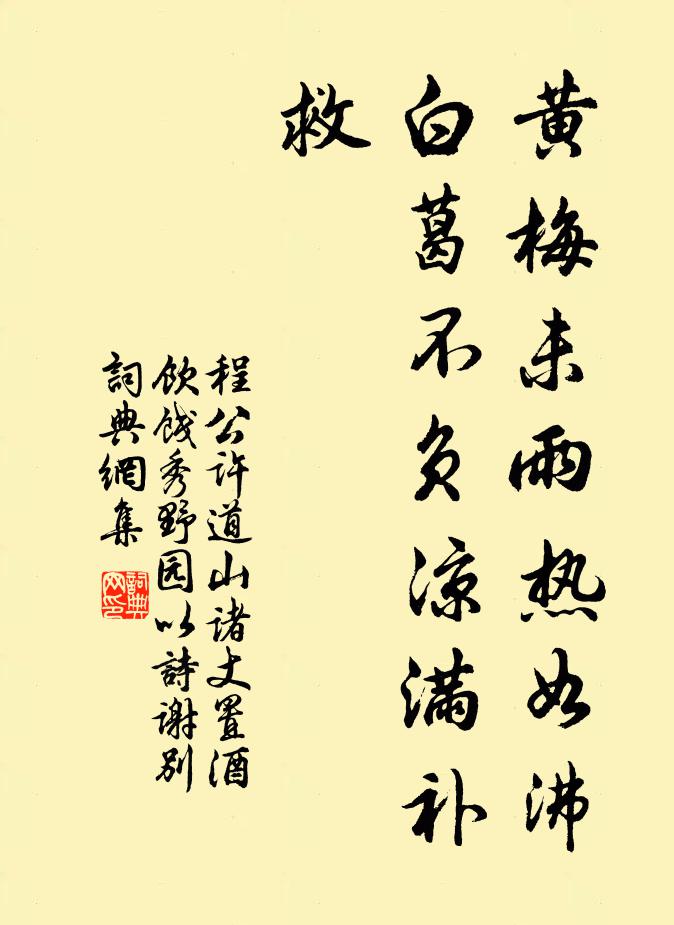 黄梅未雨热如沸
白葛不负凉满补
救
程公许道山诸丈置酒
饮饯秀野园以詩谢别
詞典網集
詞典网印